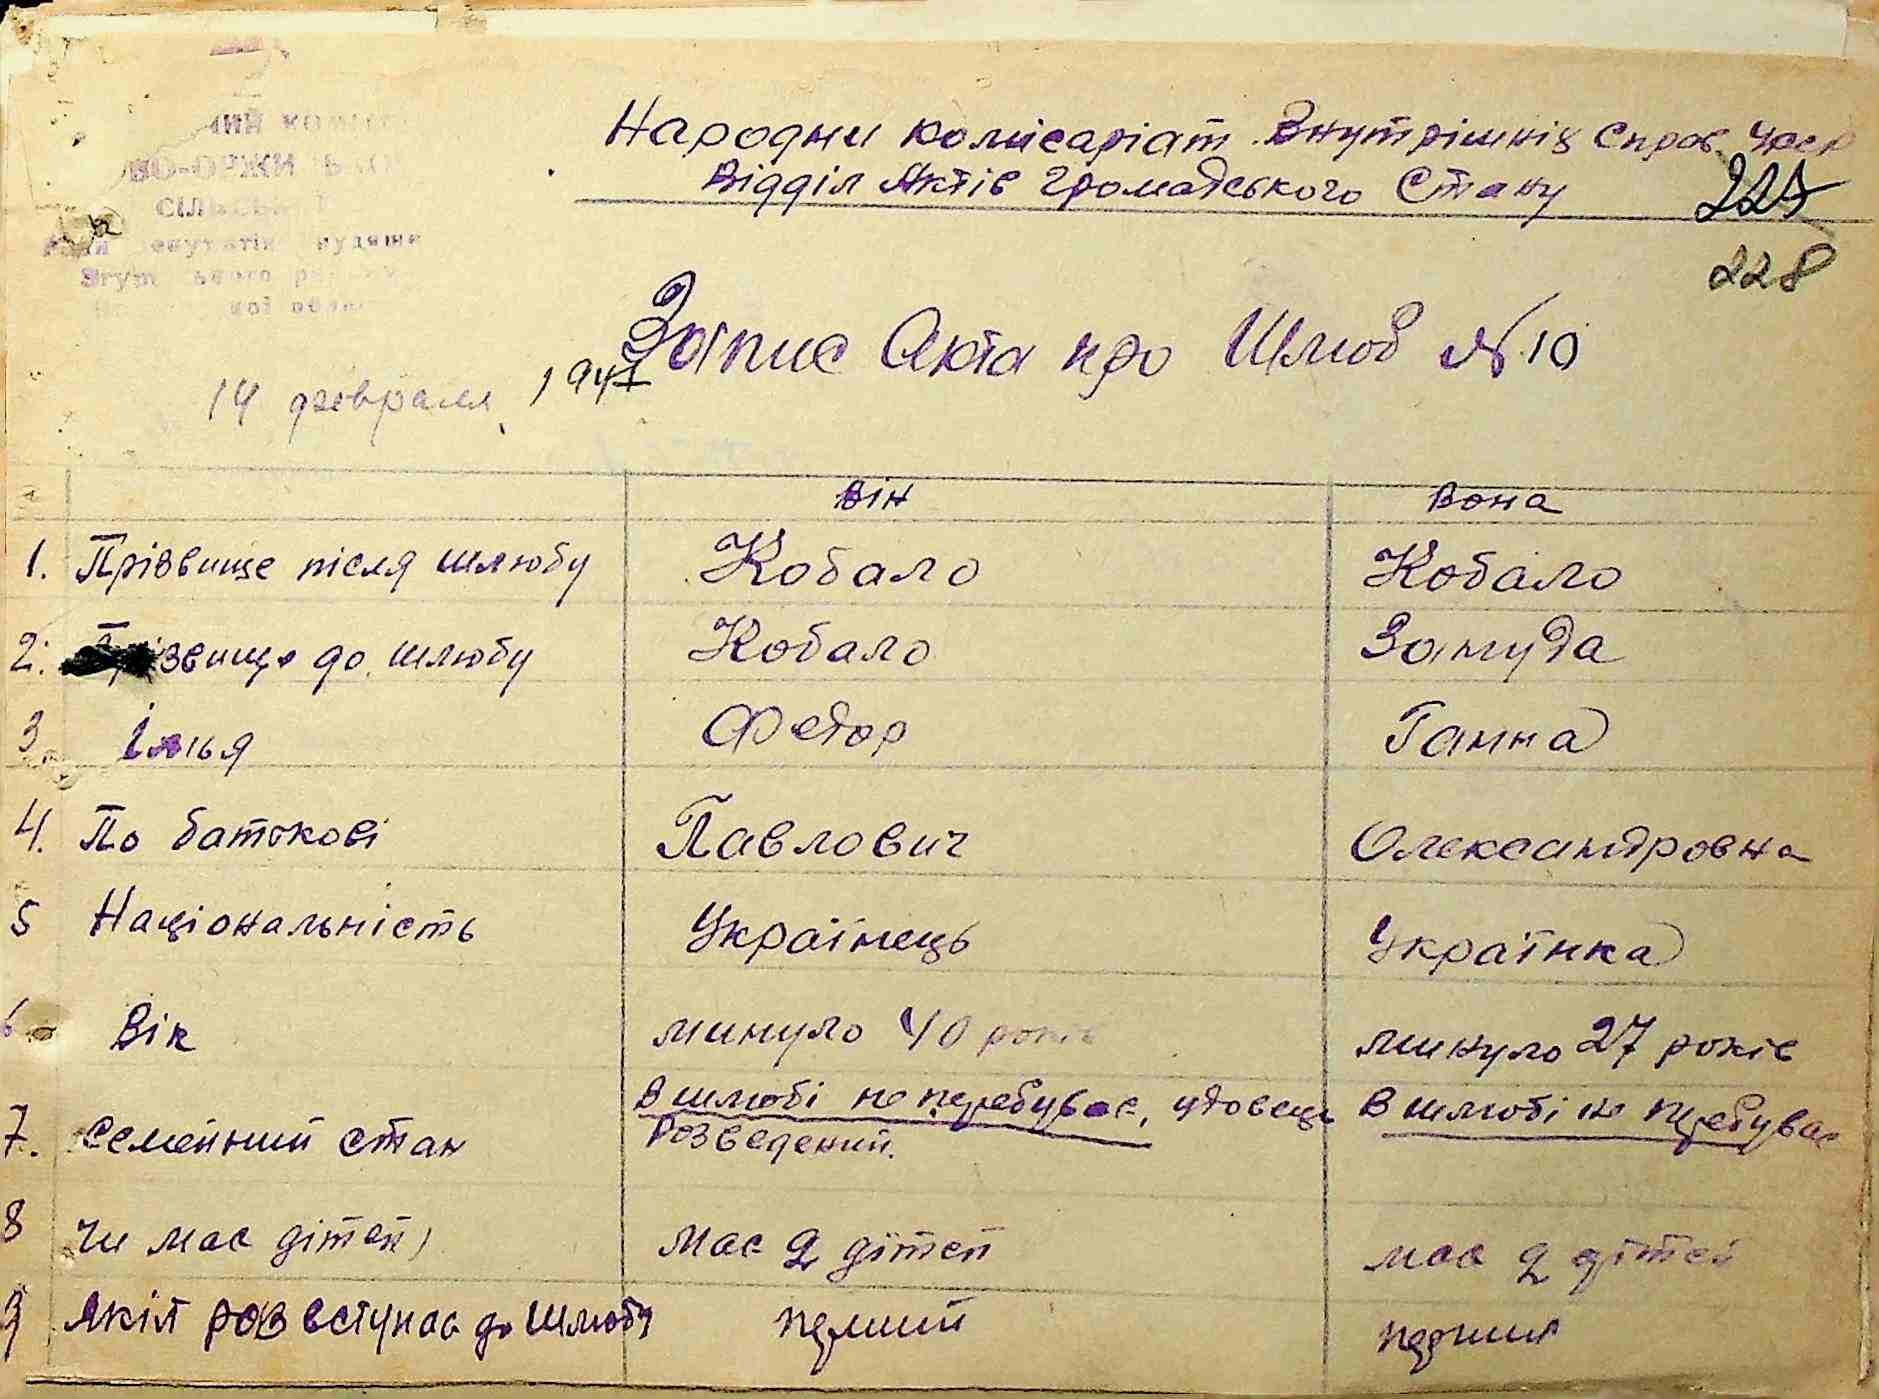 Народни комісаріат Внутрішніх Справ УРСР
Відділ Актів Громадського Стану
227
228
Запис Акта про Шлюб №10
14 февраля 1947
він вона
1. Прізвище після шлюбу Кобало Кобало
2. Прізвище до шлюбу Кобало Замуда
3 Імья Федор Ганна
4. По батькові Павлович Олександровна
5 Національність Українець Українка
6 Вік минуло 40 років минуло 27 років
7. Семейний стан В шлюбі не перебуває, удовець В шлюбі не перебуває
Розведений.
8 Чи має дітей має 2 дітей має 2 дітей
9 Якій раз вступає до шлюбу перший перший